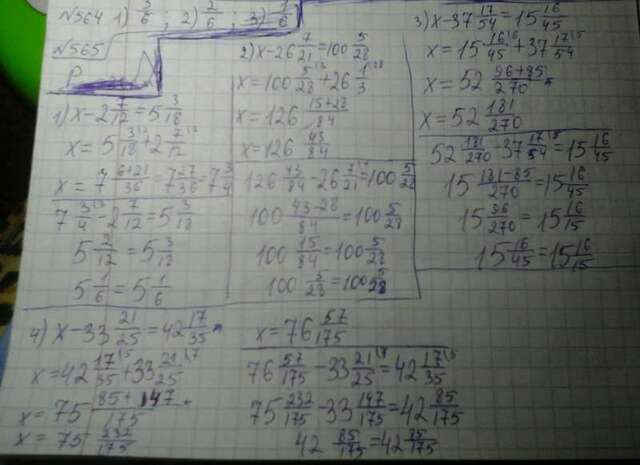 N564 1) 3/6; 2) 2/6; 3) 1/6
N565
P
1) x-2 7/12=5 3/18
x=5 3/18+2 7/12
x=7 6+21/36=7 27/36=7 3/4
7 3/4-2 7/12=5 3/18
5 2/12=5 3/18
5 1/6=5 1/6
2) x-26 7/21=100 5/28
x=100 5/28+26 1/3
x=126 15+28/84
x=126 43/84
126 43/84-26 7/21=100 5/28
100 43-28/84=100 5/28
100 15/84=100 5/28
100 5/28=100 5/28
3) x-37 17/54=15 16/45
x=15 16/45+37 17/54
x=52 96+85/270
x=52 181/270
52 181/270-37 17/54=15 16/45
15 181-85/270=15 16/45
15 96/270=15 16/15
15 16/45=15 16/15
4) x-33 21/25=42 17/35
x=42 17/35+33 21/25
x=75 85+147/175
x=75 232/175
x=76 57/175
76 57/175-33 21/25=42 17/35
75 232/175-33 147/175=42 85/175
42 85/175=42 85/175